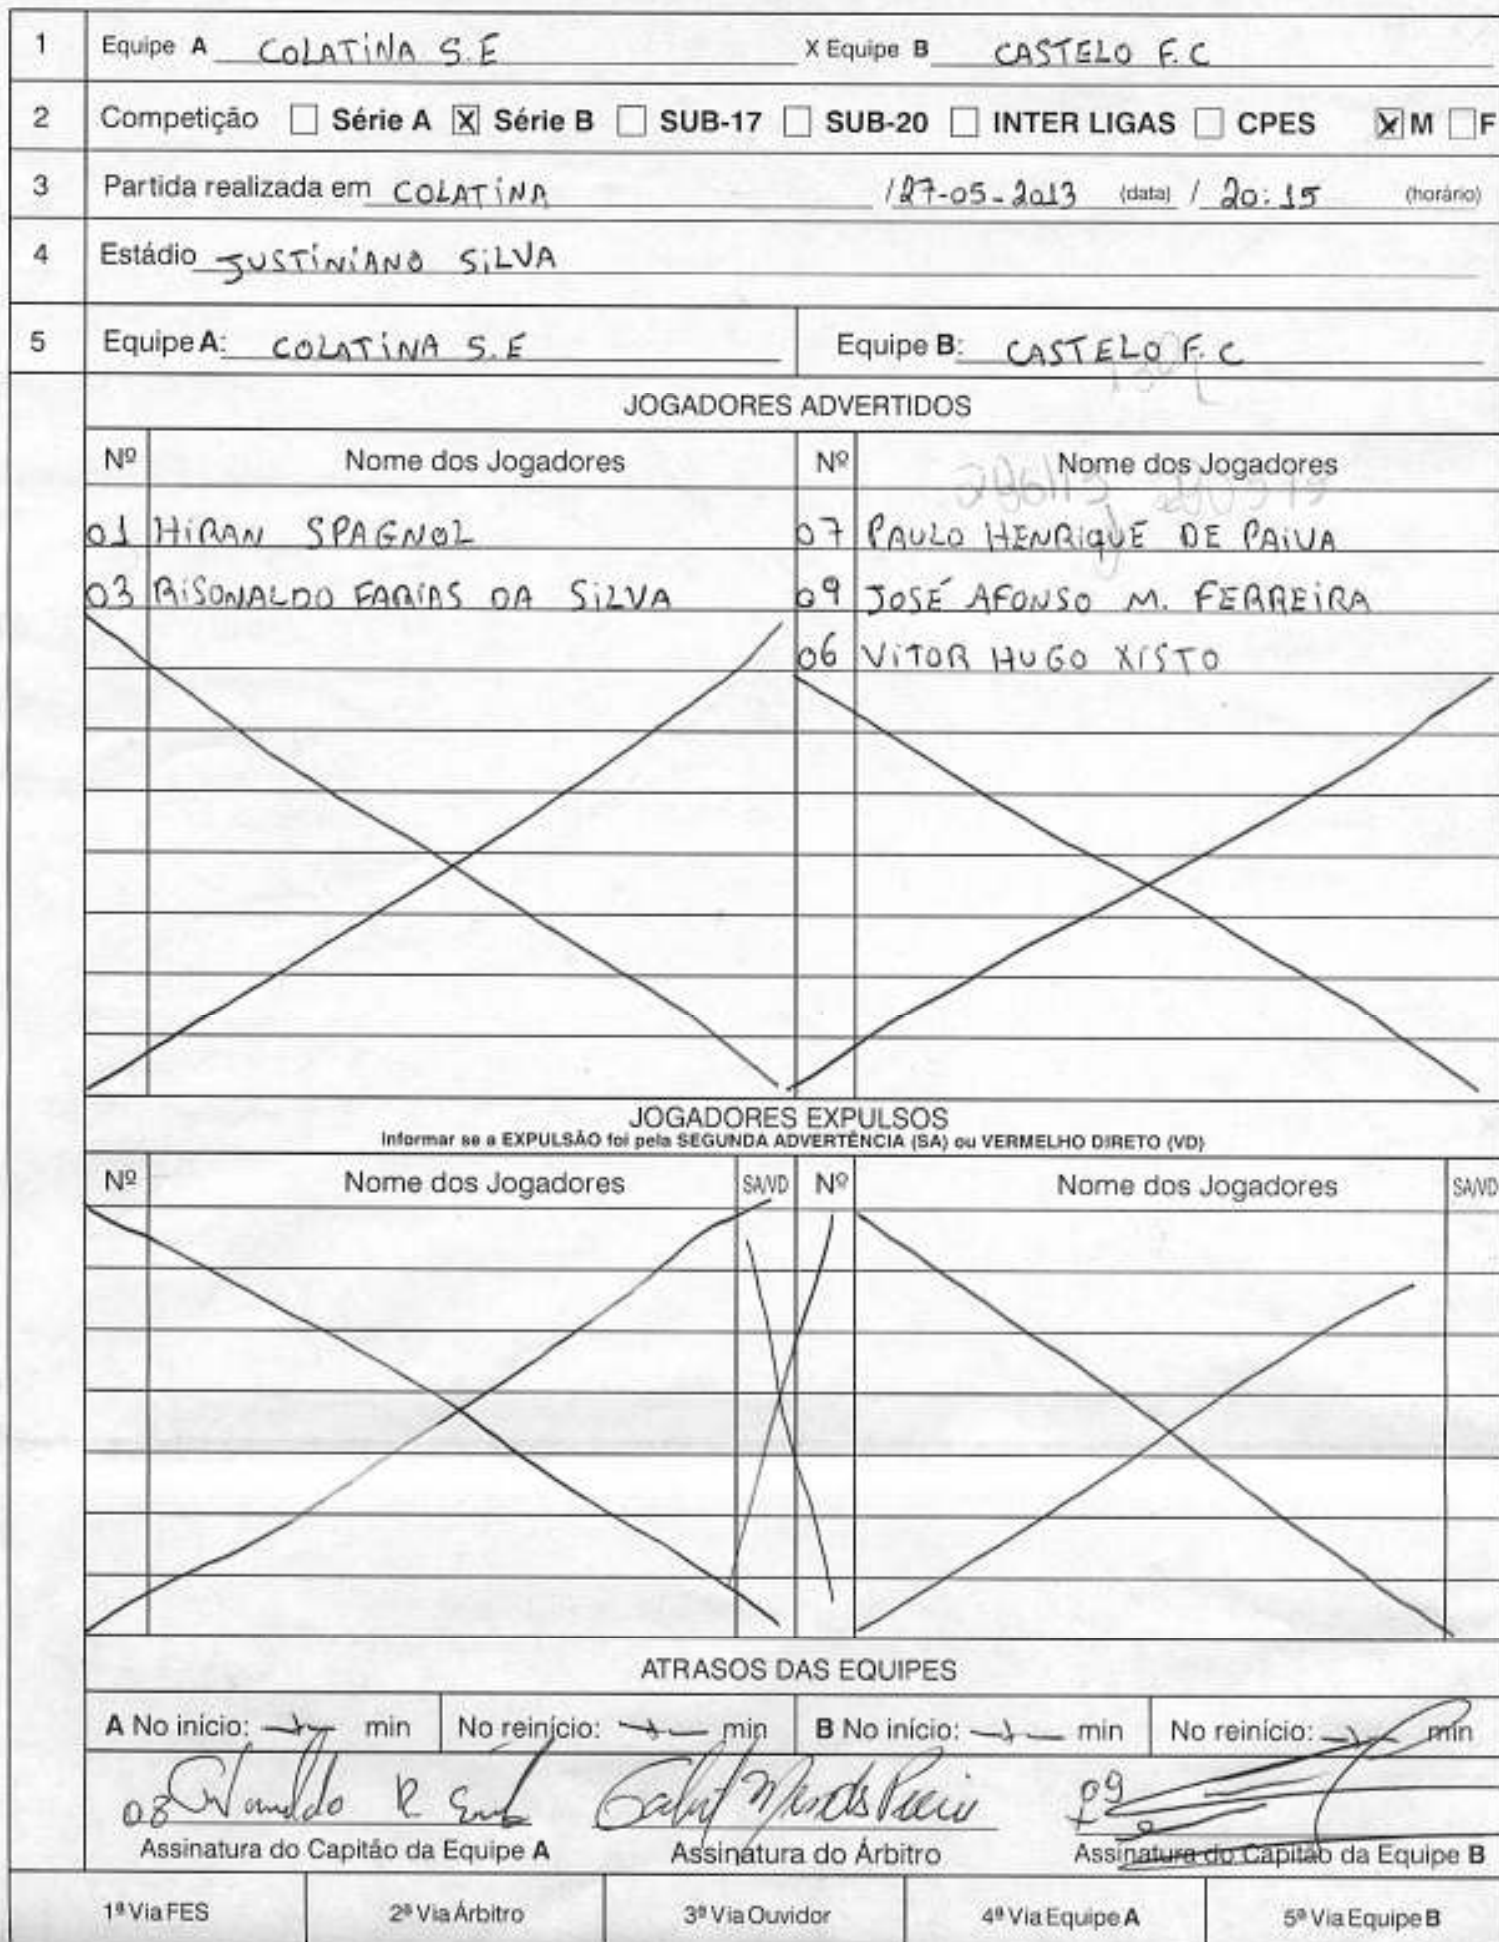 1 Equipe A COLATINA S.E X Equipe B CASTELO F.C
2 Competição Série A X Série B SUB-17 SUB-20 INTER LIGAS CPES X M F
3 Partida realizada em COLATINA / 27-05-2013 (data) / 20:15 (horário)
4 Estádio JUSTINIANO SILVA
5 Equipe A: COLATINA S.E Equipe B: CASTELO F.C
JOGADORES ADVERTIDOS
Nº Nome dos Jogadores Nº Nome dos Jogadores
01 HIRAN SPAGNOL 07 PAULO HENRIQUE DE PAIVA
03 RISONALDO FARIAS DA SILVA 09 JOSÉ AFONSO M. FERREIRA
06 VITOR HUGO XISTO
JOGADORES EXPULSOS
Informar se a EXPULSÃO foi pela SEGUNDA ADVERTÊNCIA (SA) ou VERMELHO DIRETO (VD)
Nº Nome dos Jogadores SA/VD Nº Nome dos Jogadores SA/VD
ATRASOS DAS EQUIPES
A No início: min No reinício: min B No início: min No reinício: min
08
Assinatura do Capitão da Equipe A Assinatura do Árbitro Assinatura do Capitão da Equipe B
1ª Via FES 2ª Via Árbitro 3ª Via Ouvidor 4ª Via Equipe A 5ª Via Equipe B